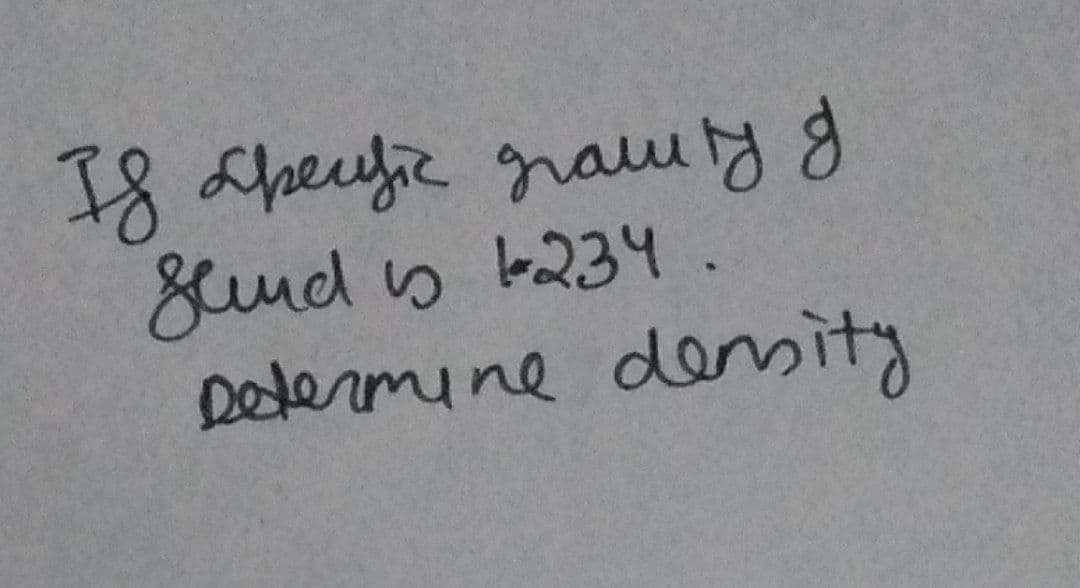 If specific gravity of
fluid is 1.234.
Determine density